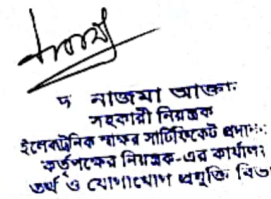 নাজমা আক্তার
সহকারী নিয়ন্ত্রক
ইলেকট্রনিক স্বাক্ষর সার্টিফিকেট প্রদান
কর্তৃপক্ষের নিয়ন্ত্রক-এর কার্যালয়
তথ্য ও যোগাযোগ প্রযুক্তি